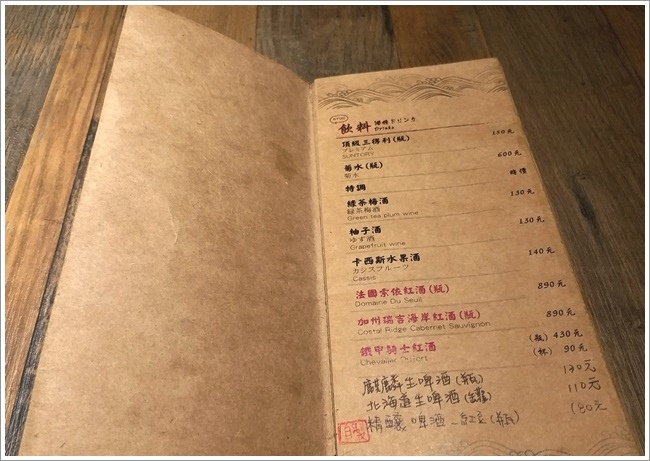 飲料 酒精ドリンカ
Drinks
頂級三得利(瓶) 150元
プレミアム
SUNTORY
菊水(瓶) 600元
菊水
特調 時價
綠茶梅酒 130元
緑茶梅酒
Green tea plum wine
柚子酒 130元
ゆず酒
Grapefruit wine
卡西斯水果酒 140元
カシスフルーツ
Cassis
法國索依紅酒(瓶) 890元
Domaine Du Seuil
加州瑞吉海岸紅酒(瓶) 890元
Costal Ridge Cabernet Sauvignon
鎧甲騎士紅酒 (瓶) 430元
Chevalier (杯) 90元
麒麟生啤酒(瓶) 130元
北海道生啤酒(罐) 110元
精釀啤酒-紅豆(瓶) 180元